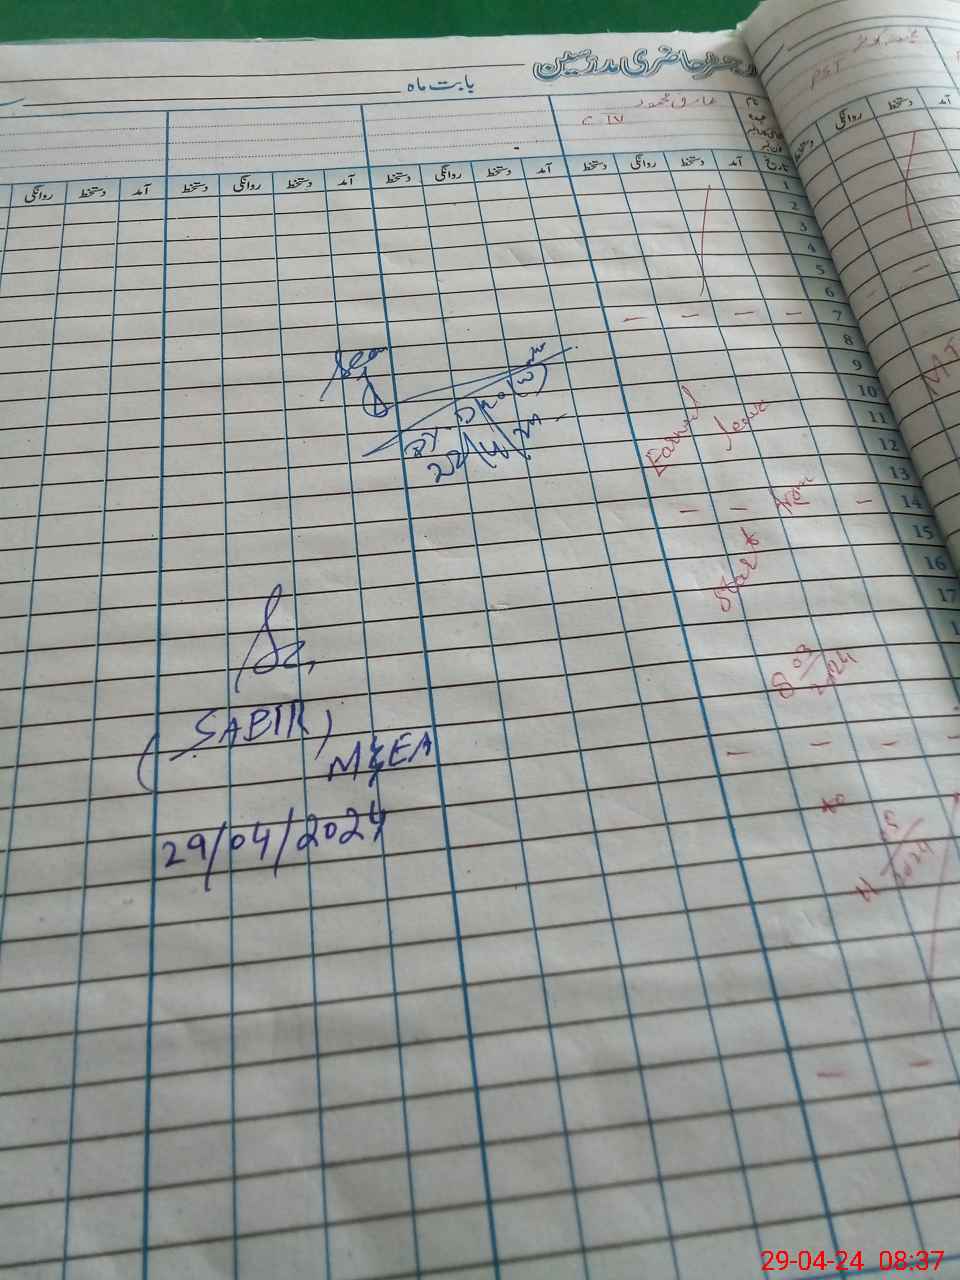 رجسٹر حاضری مدرسین
بابت ماہ
نام
عہدہ
عارف محمود
PST
تاریخ آمد دستخط روانگی دستخط آمد دستخط روانگی دستخط آمد دستخط روانگی دستخط آمد دستخط روانگی
آمد دستخط روانگی دستخط
1
2
3
4
5
6
7
8
9
10
11
12
13
14
15
16
17
Seen
22/4/24
Earned
leave
Start
from
03
2024
to
2024
(SABIR)
M&EA
29/04/2024
29-04-24 08:37